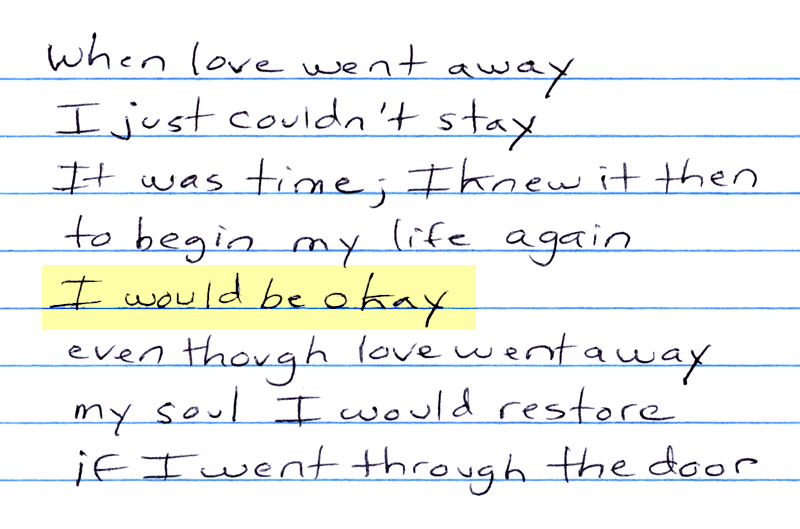 When love went away
I just couldn't stay
It was time; I knew it then
to begin my life again
I would be okay
even though love went away
my soul I would restore
if I went through the door